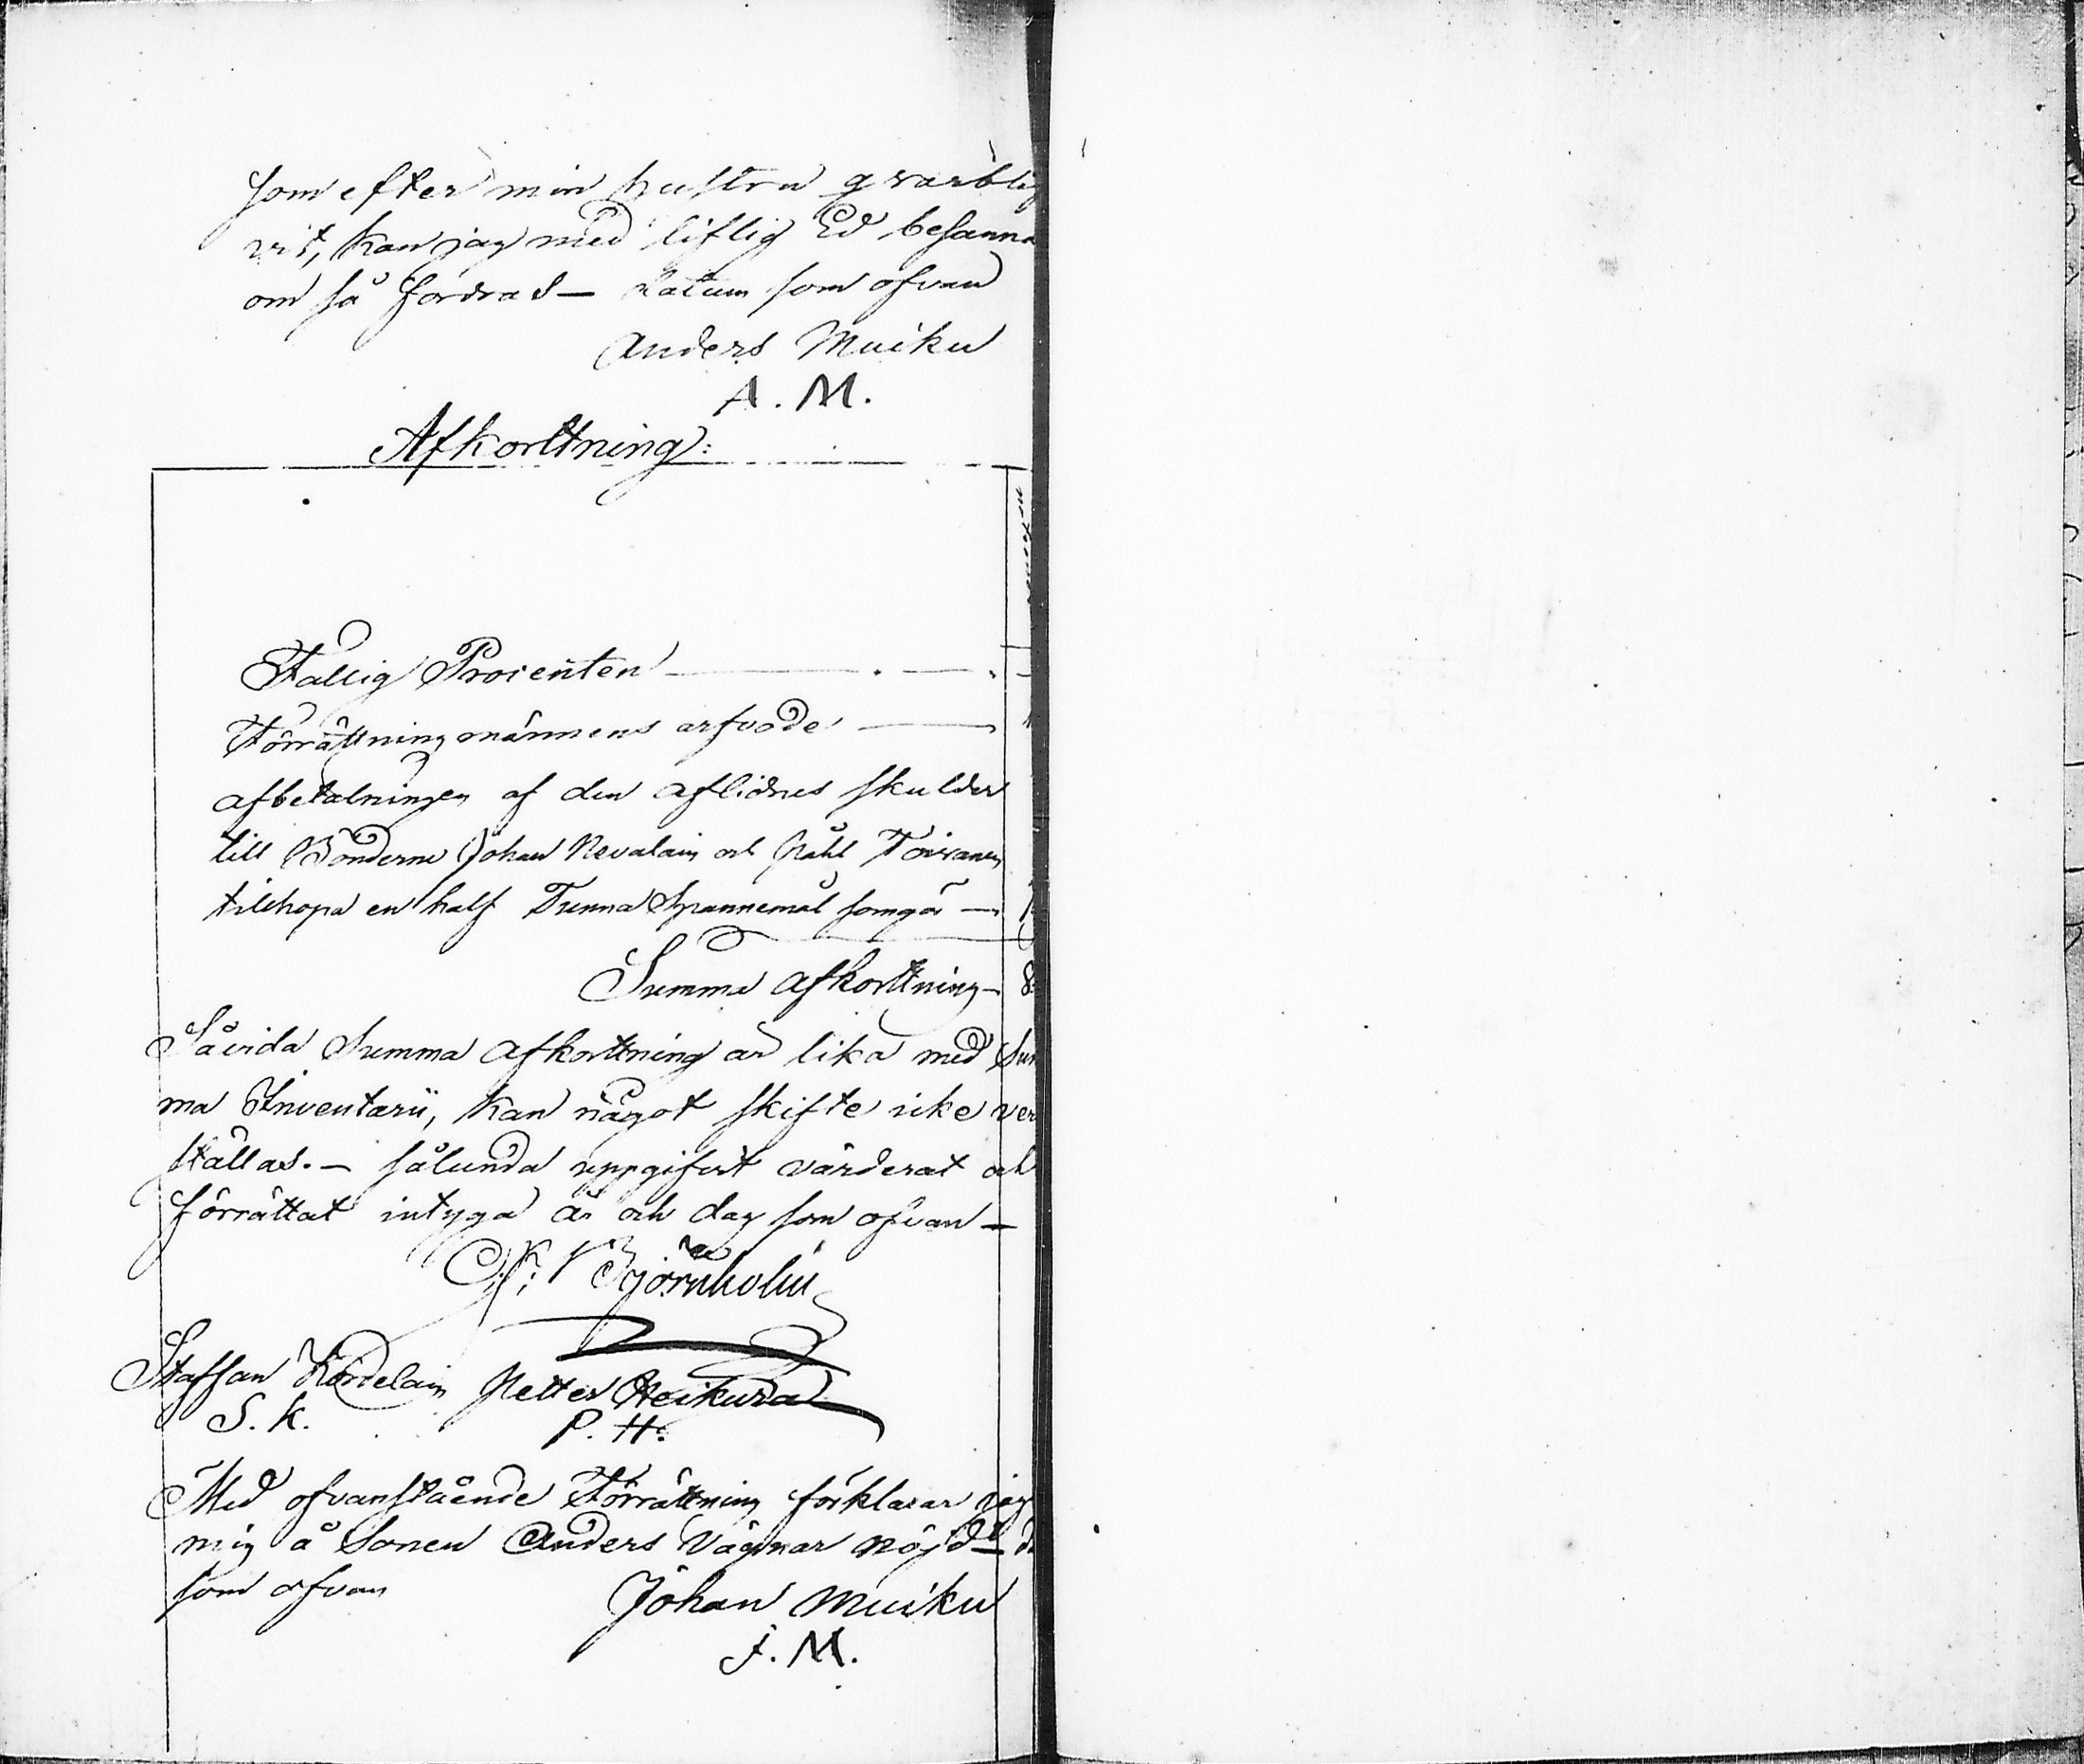 som efter min hustru qvarbli
vit, kan jag med liflig Ed besanna
om så fordras — datum som ofvan
Anders Muiku
A. M.
Afkorttning:
Fattig Procenten —
Förrättningmännens arfvode —
afbetalningen af den aflidnes skulder
till Bönderne Johan Nevalain och Påhl Toivanen
tillhopa en half Tunna Spannemål somgör —
Summa afkorttning — 8
Såvida Summa afkorttning är lika med Sum
ma Inventarii, kan något skifte icke ver
ställas. — sålunda uppgifvit värderat och
förrättat intyga år och dag som ofvan —
Björnholm
Staffan Kordelain Petter Heikura
S. K. P. H.
Med ofvanstående Förrättning förklarar jag
mig å Sonen Anders Vägnar nöjd — da
som ofvan
Johan Muiku
J. M.